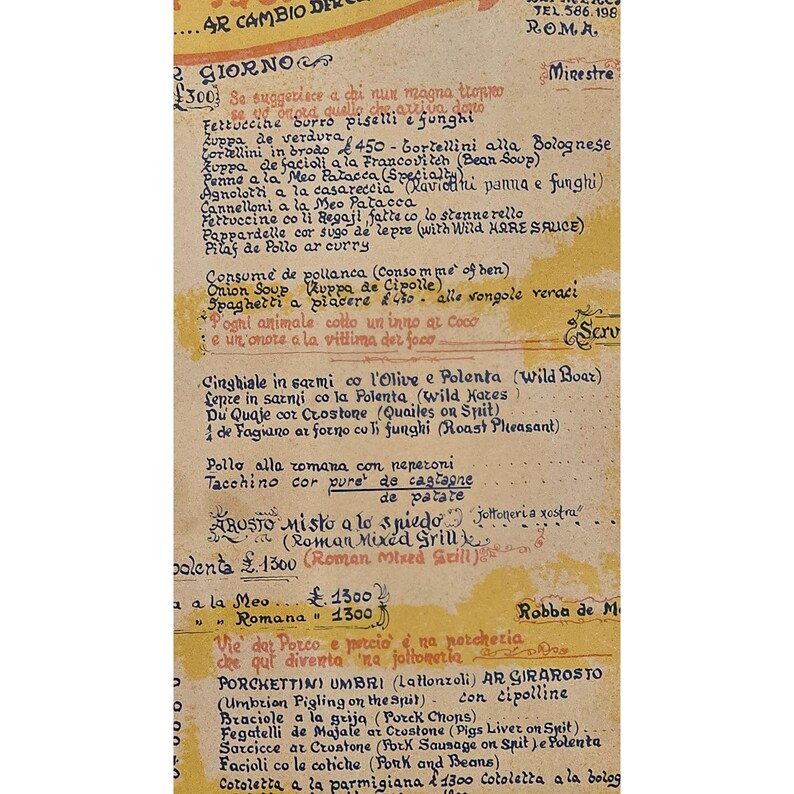 ....AR CAMBIO DER
TEL.586.198
ROMA
GIORNO
Minestre
£300
Se suggerisce a chi nun magna troppo
se vò onorà quello che ariva dopo
Fettuccine burro piselli e funghi
Zuppa de verdura
Tortellini in brodo £450 - Tortellini alla Bolognese
Zuppa de facioli a la Francovitch (Bean Soup)
Penne a la Meo Patacca (Specialty)
Agnolotti a la casareccia (Ravioli panna e funghi)
Cannelloni a la Meo Patacca
Fettuccine co li Regaji, fatte co lo stennerello
Pappardelle cor sugo de lepre (with Wild HARE SAUCE)
Pilaf de Pollo ar curry
Consumè de pollanca (Consommè of hen)
Onion Soup (Zuppa de Cipolle)
Spaghetti a piacere £450 - alle vongole veraci
P'ogni animale cotto un'inno ar Coco
e un'onore a la vittima der foco
Serv
Cinghiale in sarmi co l'Olive e Polenta (Wild Boar)
Lepre in sarmi co la Polenta (Wild Hares)
Du' Quaje cor Crostone (Quailes on Spit)
¼ de Fagiano ar forno co li funghi (Roast Pheasant)
Pollo alla romana con peperoni
Tacchino cor purè de castagne
de patate
ARUSTO Misto a lo spiedo "jottoneria nostra"
(Roman Mixed Grill)
polenta £.1300 (Roman Mixed Grill)
a a la Meo... £. 1300
" " Romana " 1300
Robba de Ma
Viè dar Porco e perciò è na porcheria
che qui diventa 'na jottoneria
PORCHETTINI UMBRI (Lattonzoli) AR GIRAROSTO
(Umbrian Pigling on the Spit) - con cipolline
Braciole a la grija (Porck Chops)
Fegatelli de Majale ar Crostone (Pigs Liver on Spit)
Sarcicce ar Crostone (Pork Sausage on Spit) e Polenta
Facioli co le cotiche (Pork and Beans)
Cotoletta a la parmigiana £1300 Cotoletta a la bolog